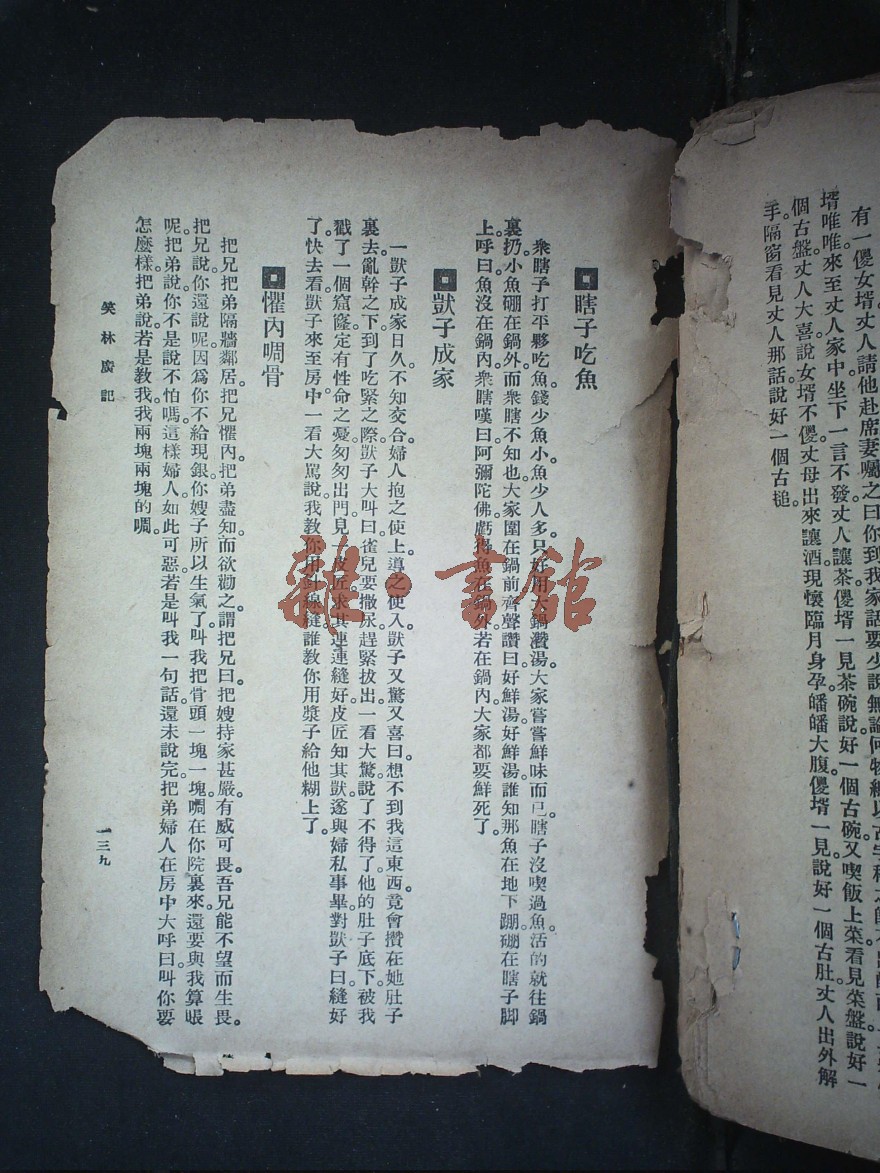 有一儍女壻丈人請他赴席妻囑之曰你到我家話要少說無論何物總以古字稱之
壻唯唯來至丈人家中坐下一言不發丈人讓茶儍壻一見茶碗說好一個古碗又喫飯上菜看見菜盤說好一
個古盤丈人大喜說女壻不儍丈母出來讓酒現懷臨月身孕皤皤大腹儍壻一見說好一個古肚丈人出外解
手隔窗看見丈人那話說好一個古槌
瞎子吃魚
衆瞎子打平夥吃魚。錢少魚小魚少人多。只好用大鍋熬湯。大家嘗嘗鮮味而已。瞎子沒喫過魚。活的就往鍋
裏扔。小魚硼在鍋外。而衆瞎不知也。大家圍在鍋前。齊聲讚曰。好鮮湯。好鮮湯。誰知那魚在地下蹦。硼在瞎子脚
上。呼曰。魚沒在鍋內。衆瞎嘆曰。阿彌陀佛。虧得魚在鍋外。若在鍋內。大家都要鮮死了。
獃子成家
一獃子成家日久。不知交合。婦人抱之使上。導之使入。獃子又驚又喜曰。想不到我這東西。竟會攢在她肚子
裏去。亂幹之下。到了吃緊之際。獃子大叫曰。雀兒要撒尿。趕緊拔出一看大驚。說了不得了。他的肚子底下被我
戳了一個窟窿。定有性命之憂。匆匆出門。見一皮匠。求其連連縫好。皮匠知其獃。遂與婦私。事畢。對獃子曰。縫好
了。快去看。獃子來至房中一看大駡。說我教你用針線縫。誰教你用漿子給他糊上了。
懼內啁骨
把兄把弟隔牆鄰居。把兄懼內。把弟盡知。而欲勸之。謂把兄曰。把嫂持家甚嚴。有威可畏。吾兄能不望而生畏。
把兄說。你還說呢。因爲你不給現銀。你嫂子所以生氣了。叫我把骨頭一塊一塊啁在你院裏來。還要與我算賬
呢。把弟說。你不是說不怕嗎。這樣婦人如此可惡。若是叫我一句話還未說完。把弟婦人在房中大呼曰。叫你要
怎麼樣。把弟說。若是教我。我兩塊兩塊的啁。
笑林廣記
一三九
雜·書館